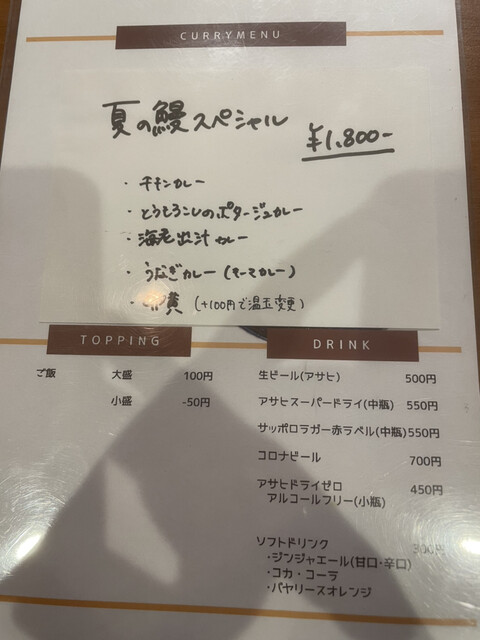 CURRYMENU
夏の鰻スペシャル
¥1,800-
・チキンカレー
・とうもろこしのポタージュカレー
・海老出汁カレー
・うなぎカレー(キーマカレー)
・卵黄(+100円で温玉変更)
TOPPING
ご飯 大盛 100円
小盛 -50円
DRINK
生ビール(アサヒ) 500円
アサヒスーパードライ(中瓶) 550円
サッポロラガー赤ラベル(中瓶)550円
コロナビール 700円
アサヒドライゼロ 450円
アルコールフリー(小瓶)
ソフトドリンク 300円
・ジンジャエール(甘口・辛口)
・コカ・コーラ
・バヤリースオレンジ